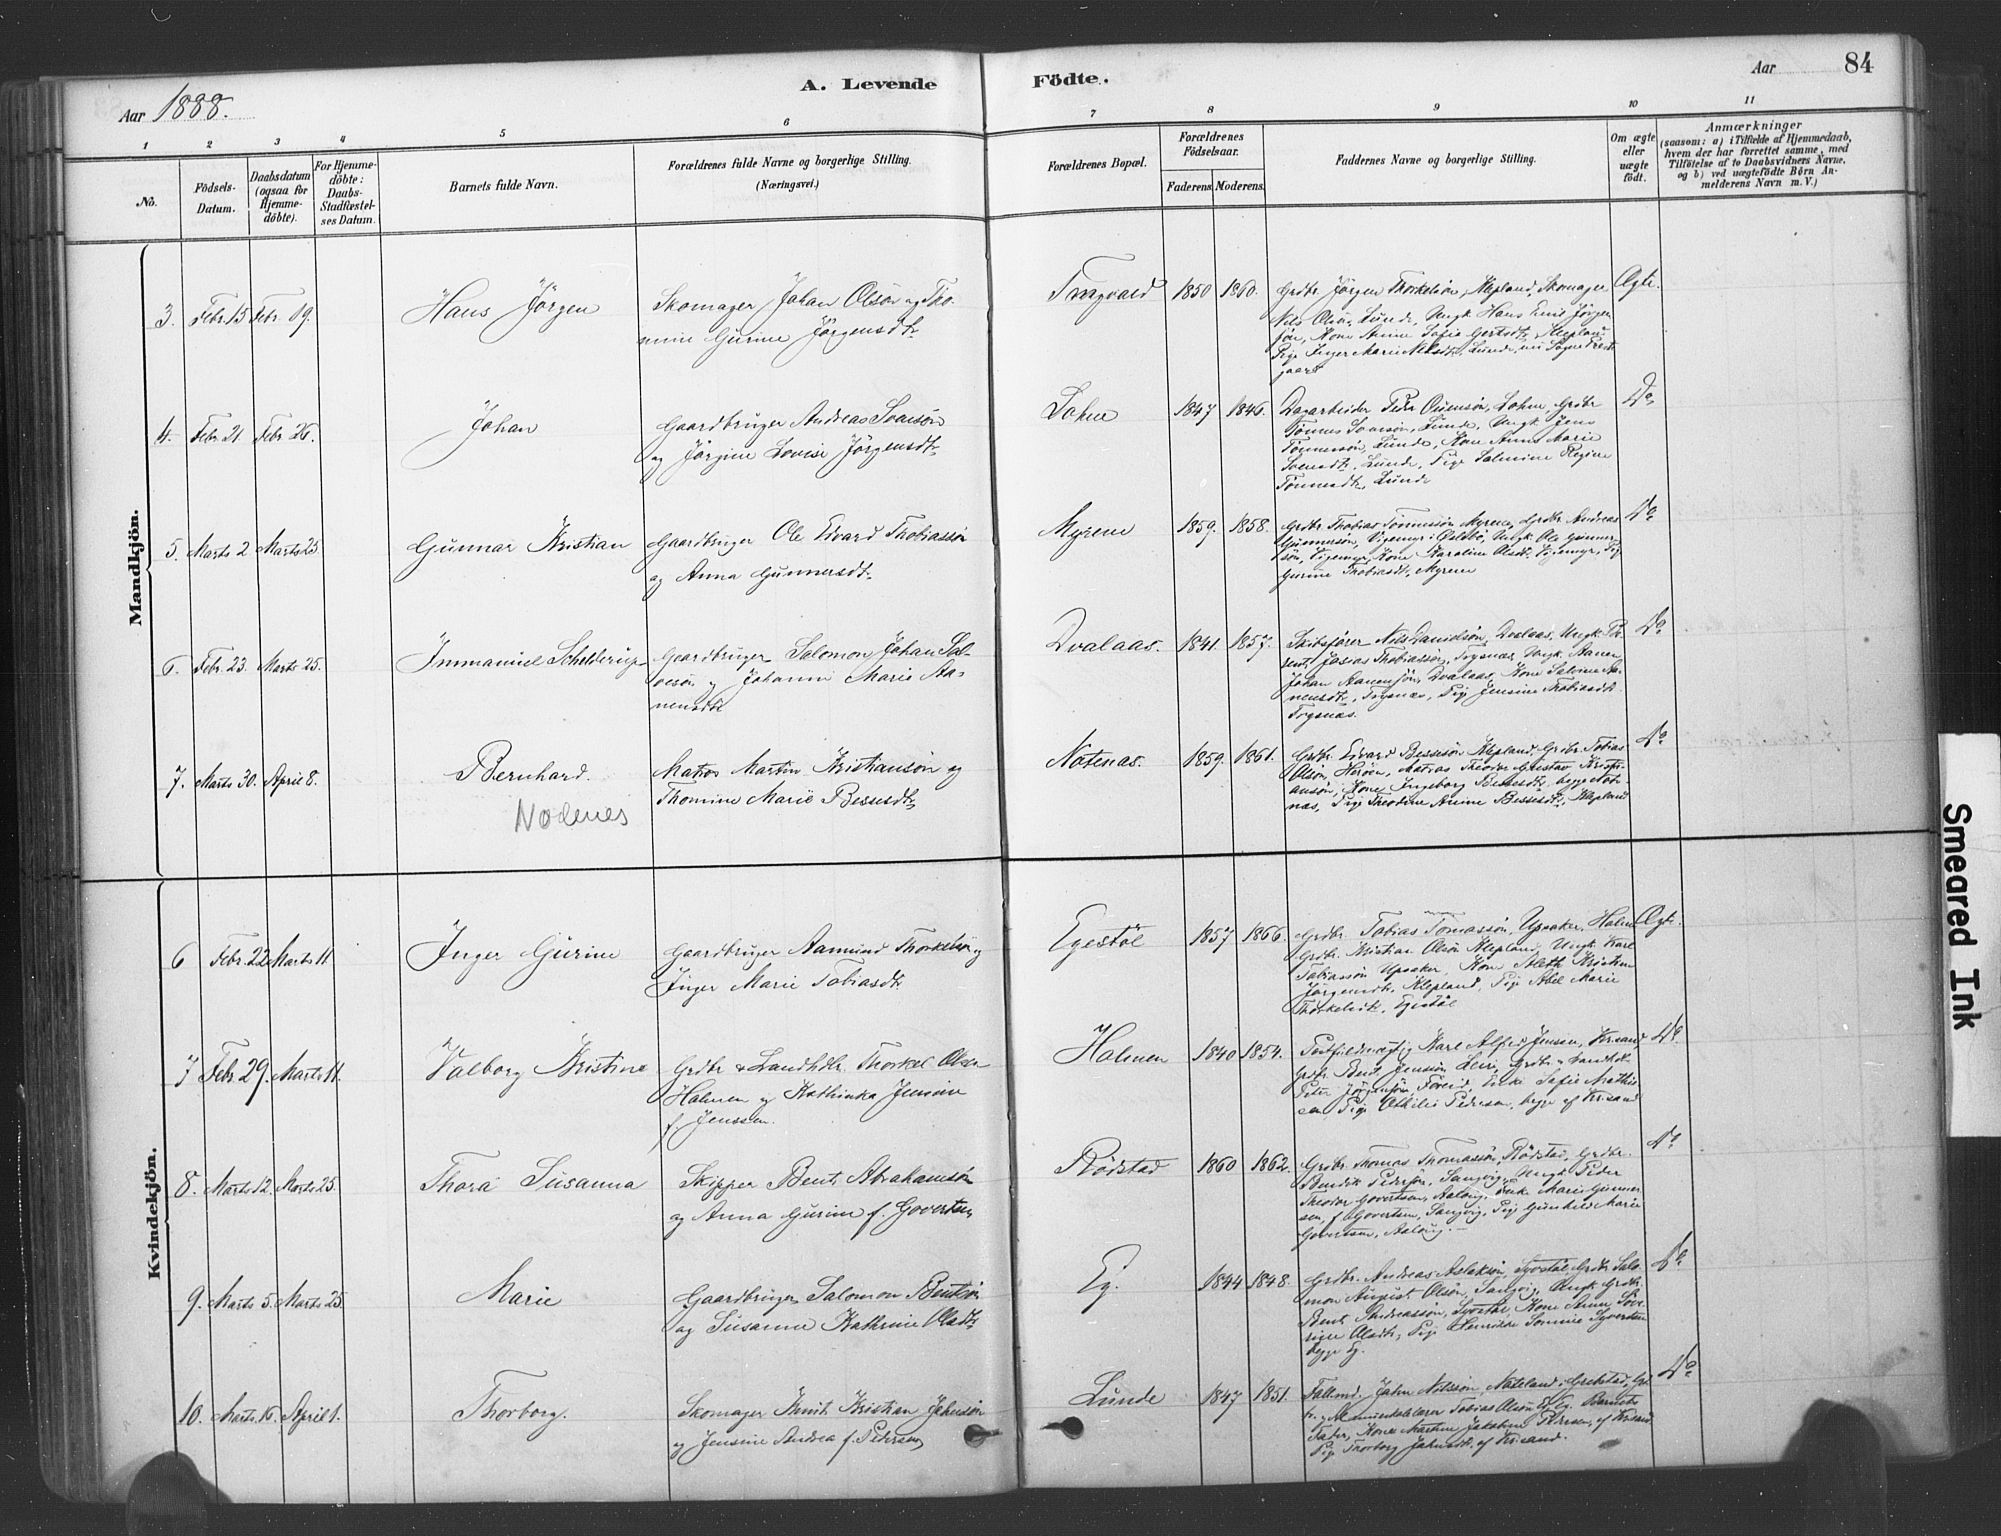 Aar 1888.
A. Levende
Födte.
Aar
84
1
2
3
4
5
6
7
8
9
10
11
No.
Födsels-
Datum.
Daabsdatum
(ogsaa for
Hjemme-
döbte).
For Hjemme-
döbte:
Daabs-
Stadfæstel-
ses Datum.
Barnets fulde Navn.
Forældrenes fulde Navne og borgerlige Stilling.
(Næringsvei.)
Forældrenes Bopæl.
Forældrenes
Födselsaar.
Faderens.
Moderens.
Faddernes Navne og borgerlige Stilling.
Om ægte
eller
uægte
født.
Anmærkninger
(saasom: a) i Tilfælde af Hjemmedaab,
hvem der har forrettet samme, med
Tilføielse af to Daabsvidners Navne,
og b) ved uægtefödte Börn An-
melderens Navn m. V.)
Mandkjön.
3. Febr. 15 Febr. 19.
Hans Jörgen
Skomager Johan Olsön og Tho-
mine Gurine Jörgensdt.
1850 1860.
Grdbr. Jörgen Thorkelsön, Klepland, Skomager
Nils Olsön, Lunde, Ungk. Hans
Kone Anne Sofie
Pige Inger Marie Nilsdt., Lunde,
gaard
Ægte.
4. Febr. 21. Febr. 26.
Johan
Gaardbruger Andreas Svensön
og Jörgine Lovise Jörgensdt.
Sohne
1847 1846.
Dagarbeider Peder Osmundsön, Sohne, Grdbr.
Tönnes Svensön, Lunde, Ungk. Jens
Tönnessön, Lunde, Kone Anne Marie
Svensdt., Lunde, Pige Salmine Regine
Tönnesdt., Lunde
Do
5. Marts 2 Marts 25
Gunnar Kristian
Gaardbruger Ole Edvard Thobiassön
og Anna Gunnersdt.
Myrene
1859. 1858.
Grdbr. Thobias Tönnessön Myrene, Grdbr. Andreas
Gunnersön, Vigemyr i Öslebö, Ungk. Ole Gunner-
sön, Vigemyr, Kone Karoline Olsdt. Vigemyr, Pige
Gurine Thobiasdt., Myrene
Do
6. Febr. 23. Marts 25.
Immanuel Schelderup
Gaardbruger Salomon Johan Sal-
vesön og Johanne Marie Aa-
nensdt.
Dvalaas.
1841. 1857.
Skibsförer Nils Danielsön, Dvalaas, Ungk.
Josias Thobiassön, Trysnæs, Ungk. Aanen
Johan Aanensön, Dvalaas, Kone Salvine Aa-
nensdt., Trysnæs, Pige Jensine Thobiasdt.
Trysnæs.
Do
7. Marts 30. April 8.
Bernhard.
Nodenes
Matros Martin Kristiansön og
Thomine Marie Bessesdt.
Notenas.
1859. 1861.
Grdbr. Edvard Bessesön Klepland, Grdbr. Tobias
Olsön, Heröen, Matros Theodor Gustav Kristi-
ansön, Kone Ingeborg Bessesdt., begge Note-
næs, Pige Theodine Anine Bessesdt., Klepland
Do
Kvindekjön.
6 Febr. 22 Marts 11
Inger Gurine
Gaardbruger Aamund Thorkelsön og
Inger Marie Tobiasdt.
Egestöl
1857 1866.
Grdbr. Tobias Tomassön, Upsaker, Halme
Grdbr. Kristian Olsön Klepland, Ungk. Karl
Tobiassön Upsaker, Kone Aleth Kristine
Jörgensdt., Klepland, Pige Abel Marie
Thorkelsdt., Egestöl
Ægte.
7 Febr. 29. Marts 11.
Valborg Kristine
Grdbr. & Landhdlr. Thorkel Olsen
Halmen og Kathinka Jensine
f. Jenssen.
Halmen
1840 1854.
Postfuldmægtig Karl Alfred Jensen, Krisand
Grdbr. Bent Jensen Leire, Grdbr. & Landhdlr.
Peter Jörgensön, Föreid, Enke Sofie Mathie-
sen, Pige Othilie Pedersen, begge af Krisand
Do
8. Marts 12. Marts 25.
Thora Susanna
Skipper Bent Abrahamsön
og Anna Gurine f. Govertsen
Rödstad
1860 1862.
Grdbr. Thomas Thomassön, Rödstad, Grdbr.
Bendik Pedersön, Langvig, Ungk. Peder
Theodor Govertsen, Aalevig, Enke Marie Gunner
sen, f. Govertsen, Langvig, Pige Gunhild Marie
Govertsen, Aalevig.
Do
9. Marts 5. Marts 25.
Marie
Gaardbruger Salomon Bentsön
og Susanne Kathrine Olsdt.
Eg.
1844 1848.
Grdbr. Andreas Aslaksön, Grdbr. Salo-
mon August Olsön, Langvig, Ungk. Grdbr.
Bent Andreassön, Kone Anne Sör-
rine Olsdt., Pige Henrikke Tomine Syvertsen
begge Eg.
Do
10. Marts 16. April 1.
Thorborg.
Skomager Knut Kristian Jahnsön
og Jensine Andrea f. Pedersen
Lunde
1847 1851.
Tallmd. Jahn Nilssön, Nateland i Grebstad,
Tobias Olsön Eg, Barnets
Fader, Kone Martine Jakobine Pedersen, af Krisand
Pige Thorborg Jahnsdt. af Krisand.
Do
Smeared Ink